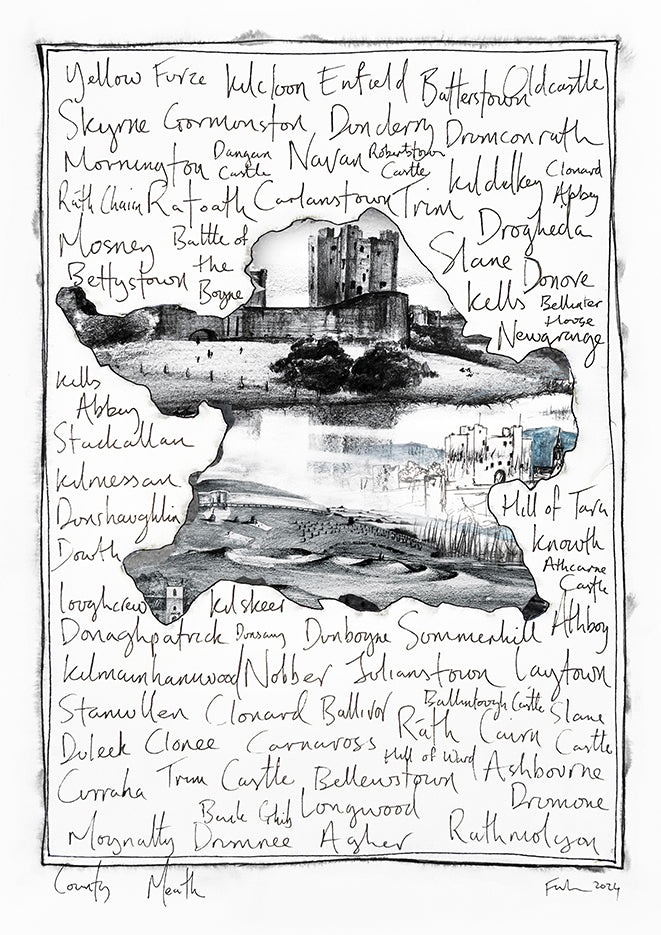 Yellow Furze Kilcloon Enfield Batterstown Oldcastle
Skyrne Gormonston Donderry Dromconrath
Mornington Dangan Castle Navan Robertstown Castle Kildalkey Clonard Abbey
Rath Chairn Ratoath Carlanstown Trim Drogheda
Mosney Battle of the Boyne Slane Donore
Bettystown Kells Bellinter House
Newgrange
Kells Abbey
Stackallan
Kilmessan
Dunshaughlin Hill of Tara
Dowth Knowth
Athcarne Castle
Loughcrew Kilskeer
Donaghpatrick Dunsany Dunboyne Summerhill Athboy
Kilmainhamwood Nobber Julianstown Laytown
Stamullen Clonard Ballivor Castle Slane Castle
Duleek Clonee Carnaross Rath Cairn
Hill of Ward Ashbourne
Curraha Trim Castle Bellewstown Dromone
Longwood
Moynalty Drumree Agher Rathmolyon
County Meath 2024